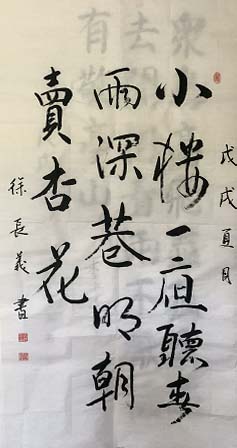 戊戌夏月
小樓一夜聽春
雨深巷明朝
賣杏花
徐長義書